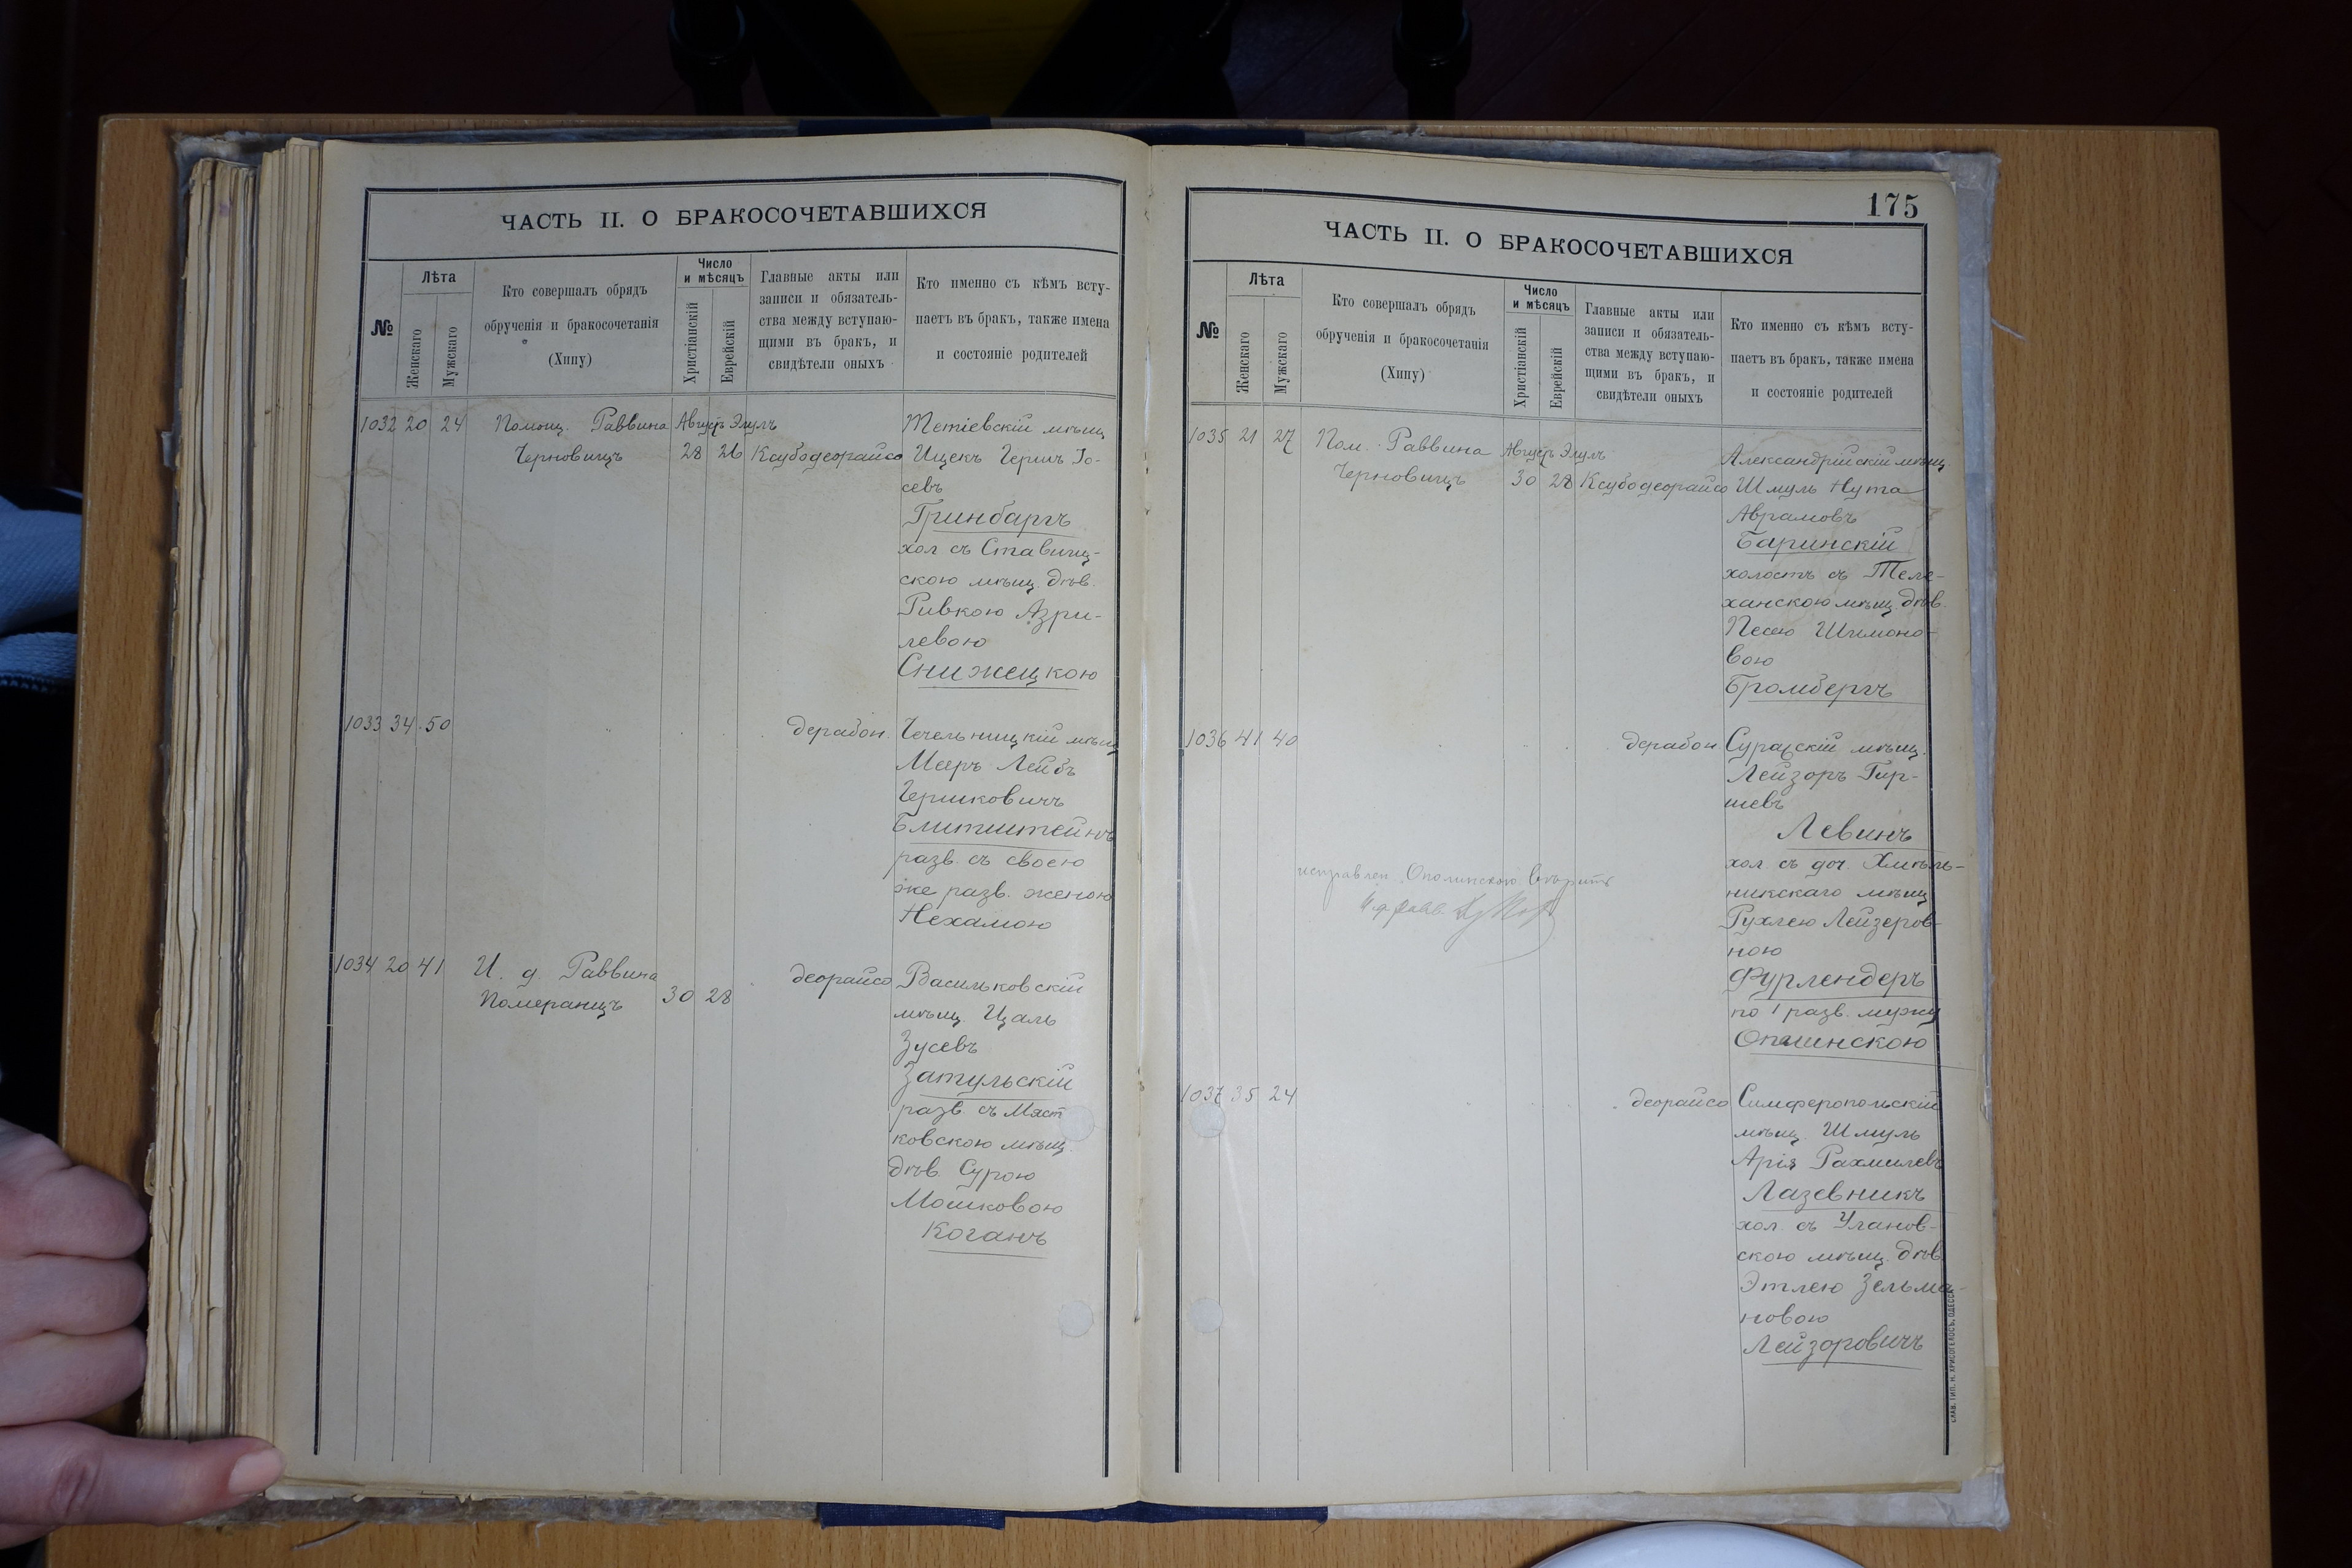 ЧАСТЬ II. О БРАКОСОЧЕТАВШИХСЯ
№
Лѣта
Женскаго
Мужскаго
Кто совершалъ обрядъ
обрученія и бракосочетанія
(Хипу)
Число
и мѣсяцъ
Христіанскій
Еврейскій
Главные акты или
записи и обязатель-
ства между вступаю-
щими въ бракъ, и
свидѣтели оныхъ
Кто именно съ кѣмъ всту-
паетъ въ бракъ, также имена
и состояніе родителей
1032 20 24 Помощ. Раввина Августъ Элулъ Тетіевскій мѣщ
Черновицъ 28 26 Ксубодеорайсо Ицекъ Гершъ Іо-
севъ
Гринбаргъ
хол съ Ставищ-
скою мѣщ. дѣв.
Ривкою Азри-
левою
Снижецкою
1033 34 50 дерабон. Чечельницкій мѣщ
Мееръ Лейбъ
Гершковичъ
Блитштейнъ
разв. съ своею
же разв. женою
Нехамою
1034 20 41 И. д. Раввина деорайсо Васильковскій
Померанцъ 30 28 мѣщ. Цаль
Зусевъ
Затульскій
разв. съ Мяст
ковскою мѣщ.
дѣв. Сурою
Мошковою
Коганъ
175
ЧАСТЬ II. О БРАКОСОЧЕТАВШИХСЯ
№
Лѣта
Женскаго
Мужскаго
Кто совершалъ обрядъ
обрученія и бракосочетанія
(Хипу)
Число
и мѣсяцъ
Христіанскій
Еврейскій
Главные акты или
записи и обязатель-
ства между вступаю-
щими въ бракъ, и
свидѣтели оныхъ
Кто именно съ кѣмъ всту-
паетъ въ бракъ, также имена
и состояніе родителей
1035 21 27 Пом. Раввина Августъ Элулъ Александрійскій мѣщ.
Черновицъ 30 28 Ксубодеорайсо Шмуль Нута
Аврамовъ
Баринскій
холостъ съ Теле-
ханскою мѣщ дѣв.
Песею Шимоно-
вою
Бромбергъ
1036 41 40 дерабон. Суражскій мѣщ.
Лейзоръ Гир-
шевъ
Левинъ
хол съ доч. Хмѣль-
никскаго мѣщ
Рухлею Лейзеров-
ною
Фурлендеръ
по 1 разв. мужу
Опалинскою
исправлен. Опалинскою вѣрить
И. д. Равв.
1037 35 24 деорайсо Симферопольскій
мѣщ. Шмуль
Арія Рахмилевъ
Лазевникъ
хол. съ Уланов-
скою мѣщ. дѣв.
Этлею Зельма-
новою
Лейзоровичъ
СЛАВ. ТИП. Н. ХРИСОГЕЛОСЪ, ОДЕССА